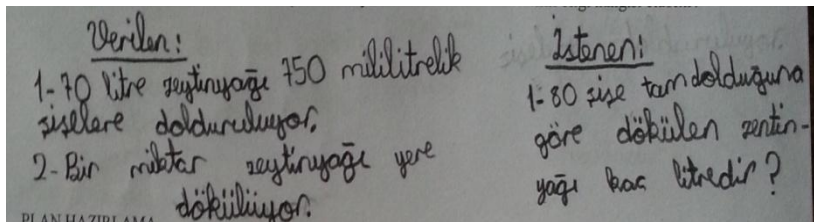 Verilen:
1-70 litre zeytinyağı 750 mililitrelik
şişelere dolduruluyor.
2-Bir miktar zeytinyağı yere
dökülüyor.
İstenen:
1-80 şişe tam dolduğuna
göre dökülen zentin-
yağı kaç litredir?
PLAN HAZIRLAMA